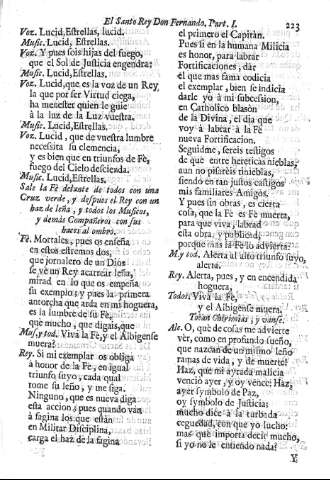 El Santo Rey Don Fernando, Part. I. 223
Voz. Lucid, Estrellas, lucid.
Music. Lucid, Estrellas.
Voz. Y pues sois hijas del fuego,
que el Sol de Justicia engendra:
Music. Lucid, Estrellas.
Voz. Lucid, que es la voz de un Rey,
la que por ser Virtud ciega,
ha menester quien le guie
à la luz de la Luz vuestra.
Music. Lucid, Estrellas.
Voz. Lucid, que de vuestra lumbre
necessita su clemencia,
y es bien que en triunfos de Fè,
fuego del Cielo descienda.
Music. Lucid, Estrellas.
Sale la Fè delante de todos con una
Cruz verde, y despues el Rey con un
haz de leña, y todos los Musicos,
y demàs Compañeros con sus
hazes al ombro.
Fè. Mortales, pues os enseña
en estos estremos dos,
que jornalero de un Dios
se vè un Rey acarrear leña,
mirad en lo que os empeña
su exemplo; y pues la primera
antorcha que arda en mi hoguera,
es la lumbre de su Fè,
què mucho, que digais, que
Mus. y tod. Viva la Fè, y el Albigense
muera?
Rey. Si mi exemplar os obliga
à honor de la Fè, en igual
triunfo suyo, cada qual
tome su leño, y me siga.
Ninguno, que es nueva diga
esta accion; pues quando vàn
à fagina los que estàn
en Militar Disciplina,
carga el haz de la fagina
el primero el Capitàn.
Pues si en la humana Milicia
es honor, para labrar
Fortificaciones, dàr
èl que mas fama codicia
el exemplar, bien se indicia
darle yo à mi subcession,
en Catholico blasòn
de la Divina, el dia que
voy à labrar à la Fè
nueva Fortificacion.
Seguidme, sereis testigos
de que entre hereticas nieblas,
aun no pisareis tinieblas,
siendo en tan justos castigos
mis familiares Amigos.
Y pues sin obras, es cierta
cosa, que la Fè es Fè muerta,
para que viva, labrad
esta obra, y publicad,
porque mas la Fè lo advierta:
M. y tod. Alerta al alto triunfo suyo,
alerta.
Rey. Alerta, pues, y en encendida
hoguera,
Todos. Viva la Fè,
y el Albigense muera.
Tocan Chirimias, y vanse.
Ale. O, què de cosas me advierte
vèr, como en profundo sueño,
que nazcan de un mismo leño
ramas de vida, y de muerte!
Haz, que mi ayrada malicia
venciò ayer, y oy vence! Haz,
ayer symbolo de Paz,
oy symbolo de Justicia:
mucho dice à la turbada
ceguedad, con que yo lucho:
mas què importa decir mucho,
si yo no le entiendo nada?
Y